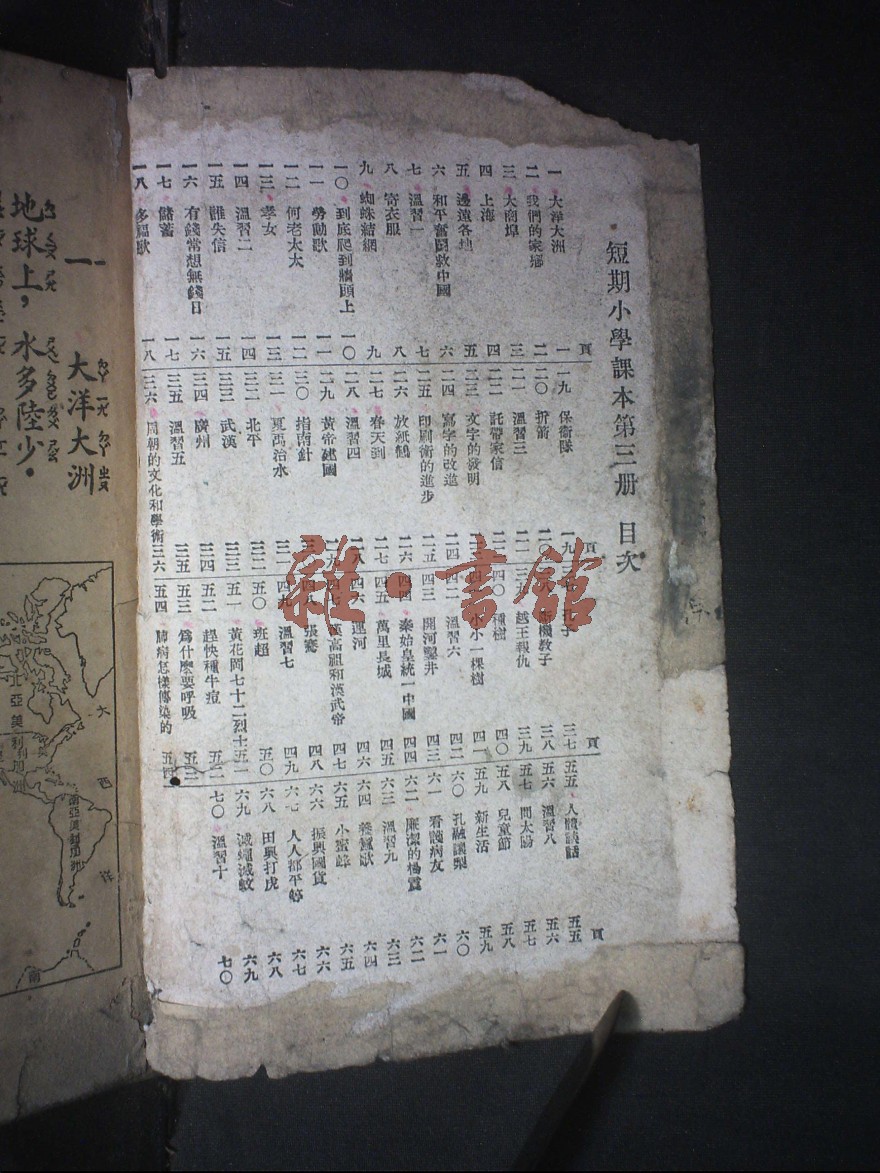 短期小學課本第三册 目次
頁
一 大洋大洲 一
二 我們的家鄉 二
三 大商埠 三
四 上海 四
五 邊遠各地 五
六 和平奮鬪救中國 六
七 溫習一 七
八 寄衣服 八
九 蜘蛛結網 九
一〇 到底爬到牆頭上 一〇
一一 勞動歌 一一
一二 何老太太 一二
一三 孝女 一三
一四 溫習二 一四
一五 誰失信 一五
一六 有錢常想無錢日 一六
一七 儲蓄 一七
一八 多福歌 一八
頁
一九 保衞隊 一九
二〇 折箭 二〇
二一 溫習三 二一
二二 託帶家信
二三 文字的發明
二四 寫字的改進 二四
二五 印刷術的進步 二五
二六 放紙鶴 二六
二七 春天到 二七
二八 溫習四 二八
二九 黃帝建國 二九
三〇 指南針
三一 夏禹治水 三一
三二 北平 三二
三三 武漢 三三
三四 廣州 三四
三五 溫習五 三五
三六 周朝的文化和學術 三六
頁
孔子 三七
機教子 三八
越王報仇 三九
四〇 種樹 四〇
小小一棵樹 四一
四二 溫習六 四二
四三 開河鑿井 四三
四四 秦始皇統一中國 四四
四五 萬里長城 四五
四六 運河 四六
四七 漢高祖和漢武帝 四七
四八 張騫 四八
四九 溫習七 四九
五〇 班超 五〇
五一 黃花岡七十二烈士 五一
五二 趕快種牛痘 五二
五三 爲什麼要呼吸 五三
五四 肺病怎樣傳染的 五四
頁
五五 人體談話 五五
五六 溫習八 五六
五七 問太陽 五七
五八 兒童節 五八
五九 新生活 五九
六〇 孔融讓梨 六〇
六一 看護病友 六一
六二 廉潔的楊震 六二
六三 溫習九 六三
六四 養蠶歌 六四
六五 小蜜蜂 六五
六六 振興國貨 六六
六七 人人都平等 六七
六八 田興打虎 六八
六九 滅蠅滅蚊 六九
七〇 溫習十 七〇
雜·書館
一 大洋大洲
地球上，水多陸少．
大西洋